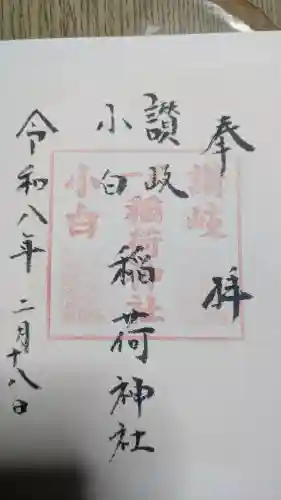 奉拝
讃岐
小白
稲荷神社
令和八年二月十八日
讃岐
一稲荷神社
小白